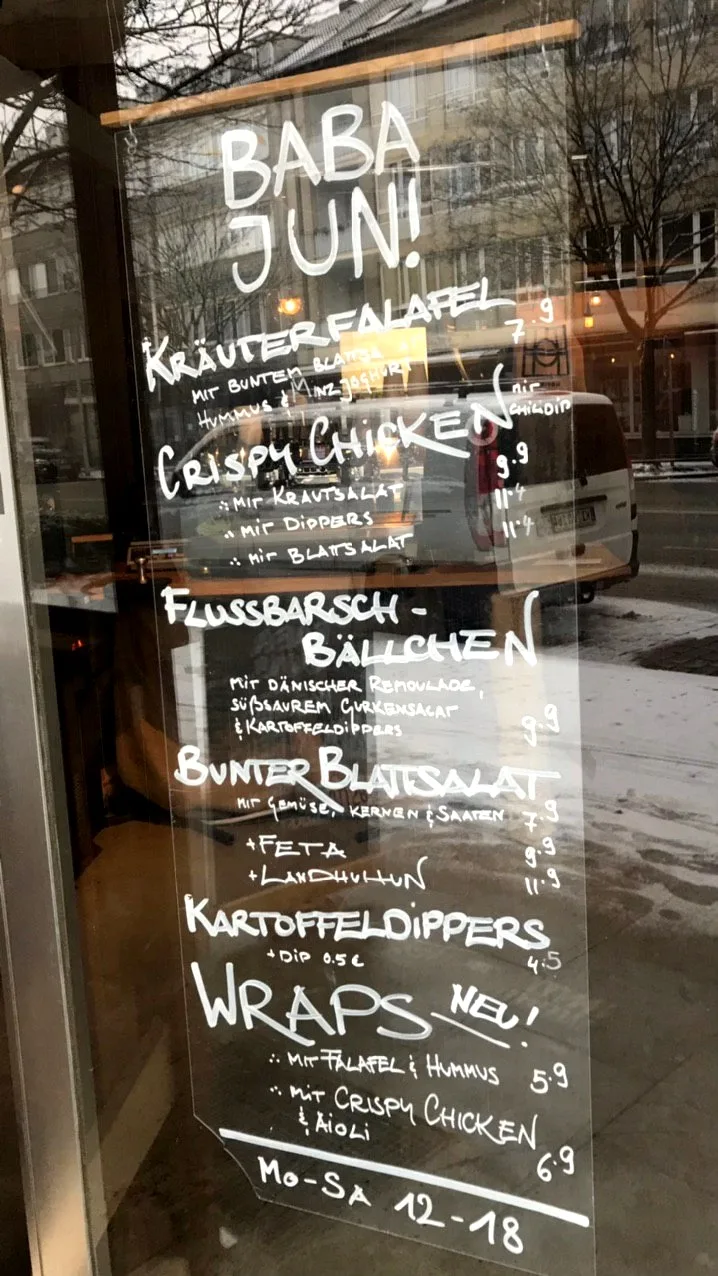 BABA
JUN!
KRÄUTERFALAFEL 7.9
MIT BUNTEM BLATTSA
HUMMUS & MINZJOGHURT
CRISPY CHICKEN MIT
CHILIDIP
9.9
∴ MIT KRAUTSALAT 11.4
∴ MIT DIPPERS 11.4
∴ MIT BLATTSALAT
FLUSSBARSCH-
BÄLLCHEN
MIT DÄNISCHER REMOULADE,
SÜßSAUREM GURKENSALAT
& KARTOFFELDIPPERS 9.9
BUNTER BLATTSALAT
MIT GEMÜSE, KERNEN & SAATEN 7.9
+ FETA 9.9
+ LANDHUHN 11.9
KARTOFFELDIPPERS
+ DIP 0.5€ 4.5
WRAPS NEU!
∴ MIT FALAFEL & HUMMUS 5.9
∴ MIT CRISPY CHICKEN
& ÄIOLI 6.9
MO-SA 12-18